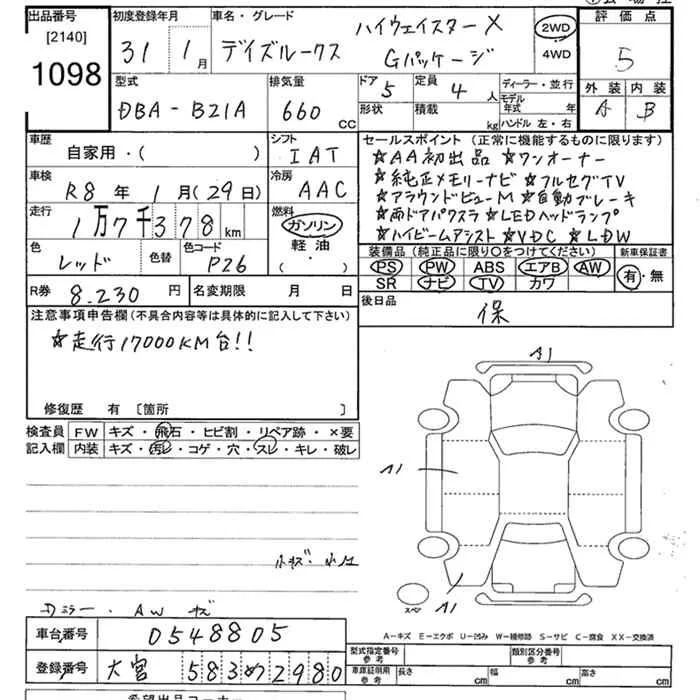 出品番号 初度登録年月 車名・グレード ハイウェイスター X 2WD 評価点
[2140] 31 1月 デイズルークス Gパッケージ 4WD 5
1098
型式 排気量 ドア 5 定員 4人 ディーラー・並行 外装 内装
DBA-B21A 660cc 形状 積載 kg モデル年式 年 A B
ハンドル 左・右
車歴 シフト セールスポイント (正常に機能するものに限ります)
自家用・( ) IAT ☆AA初出品 ☆ワンオーナー
車検 冷房 ☆純正メモリーナビ ☆フルセグTV
R8年 1月(29日) AAC ☆アラウンドビューM ☆自動ブレーキ
走行 燃料 ☆両ドアパワスラ ☆LEDヘッドランプ
1万7千378km ガソリン ☆ハイビームアシスト ☆VDC ☆LDW
色 色替 色コード 軽油 装備品(純正品に限り○をつけてください) 新車保証書
レッド P26 (・) PS PW ABS エアB AW 有・無
SR ナビ TV カワ
R券 8.230円 名変期限 月 日 後日品
保
注意事項申告欄(不具合内容等は具体的に記入して下さい)
☆走行17000KM台!!
修復歴 有 〔箇所 〕
検査員 FW キズ・飛石・ヒビ割・リペア跡・×要
記入欄 内装 キズ・汚レ・コゲ・穴・スレ・キレ・破レ
A1
A1
A1
スペア
ミラー・AW キズ
A-キズ E-エクボ U-凹み W-補修跡 S-サビ C-腐食 XX-交換済
車台番号 0548805
型式指定番号 参考 類別区分番号 参考
登録番号 大宮 583 め 2980
車庫証明用 参考 長さ cm 幅 cm 高さ cm
希望出品コーナー